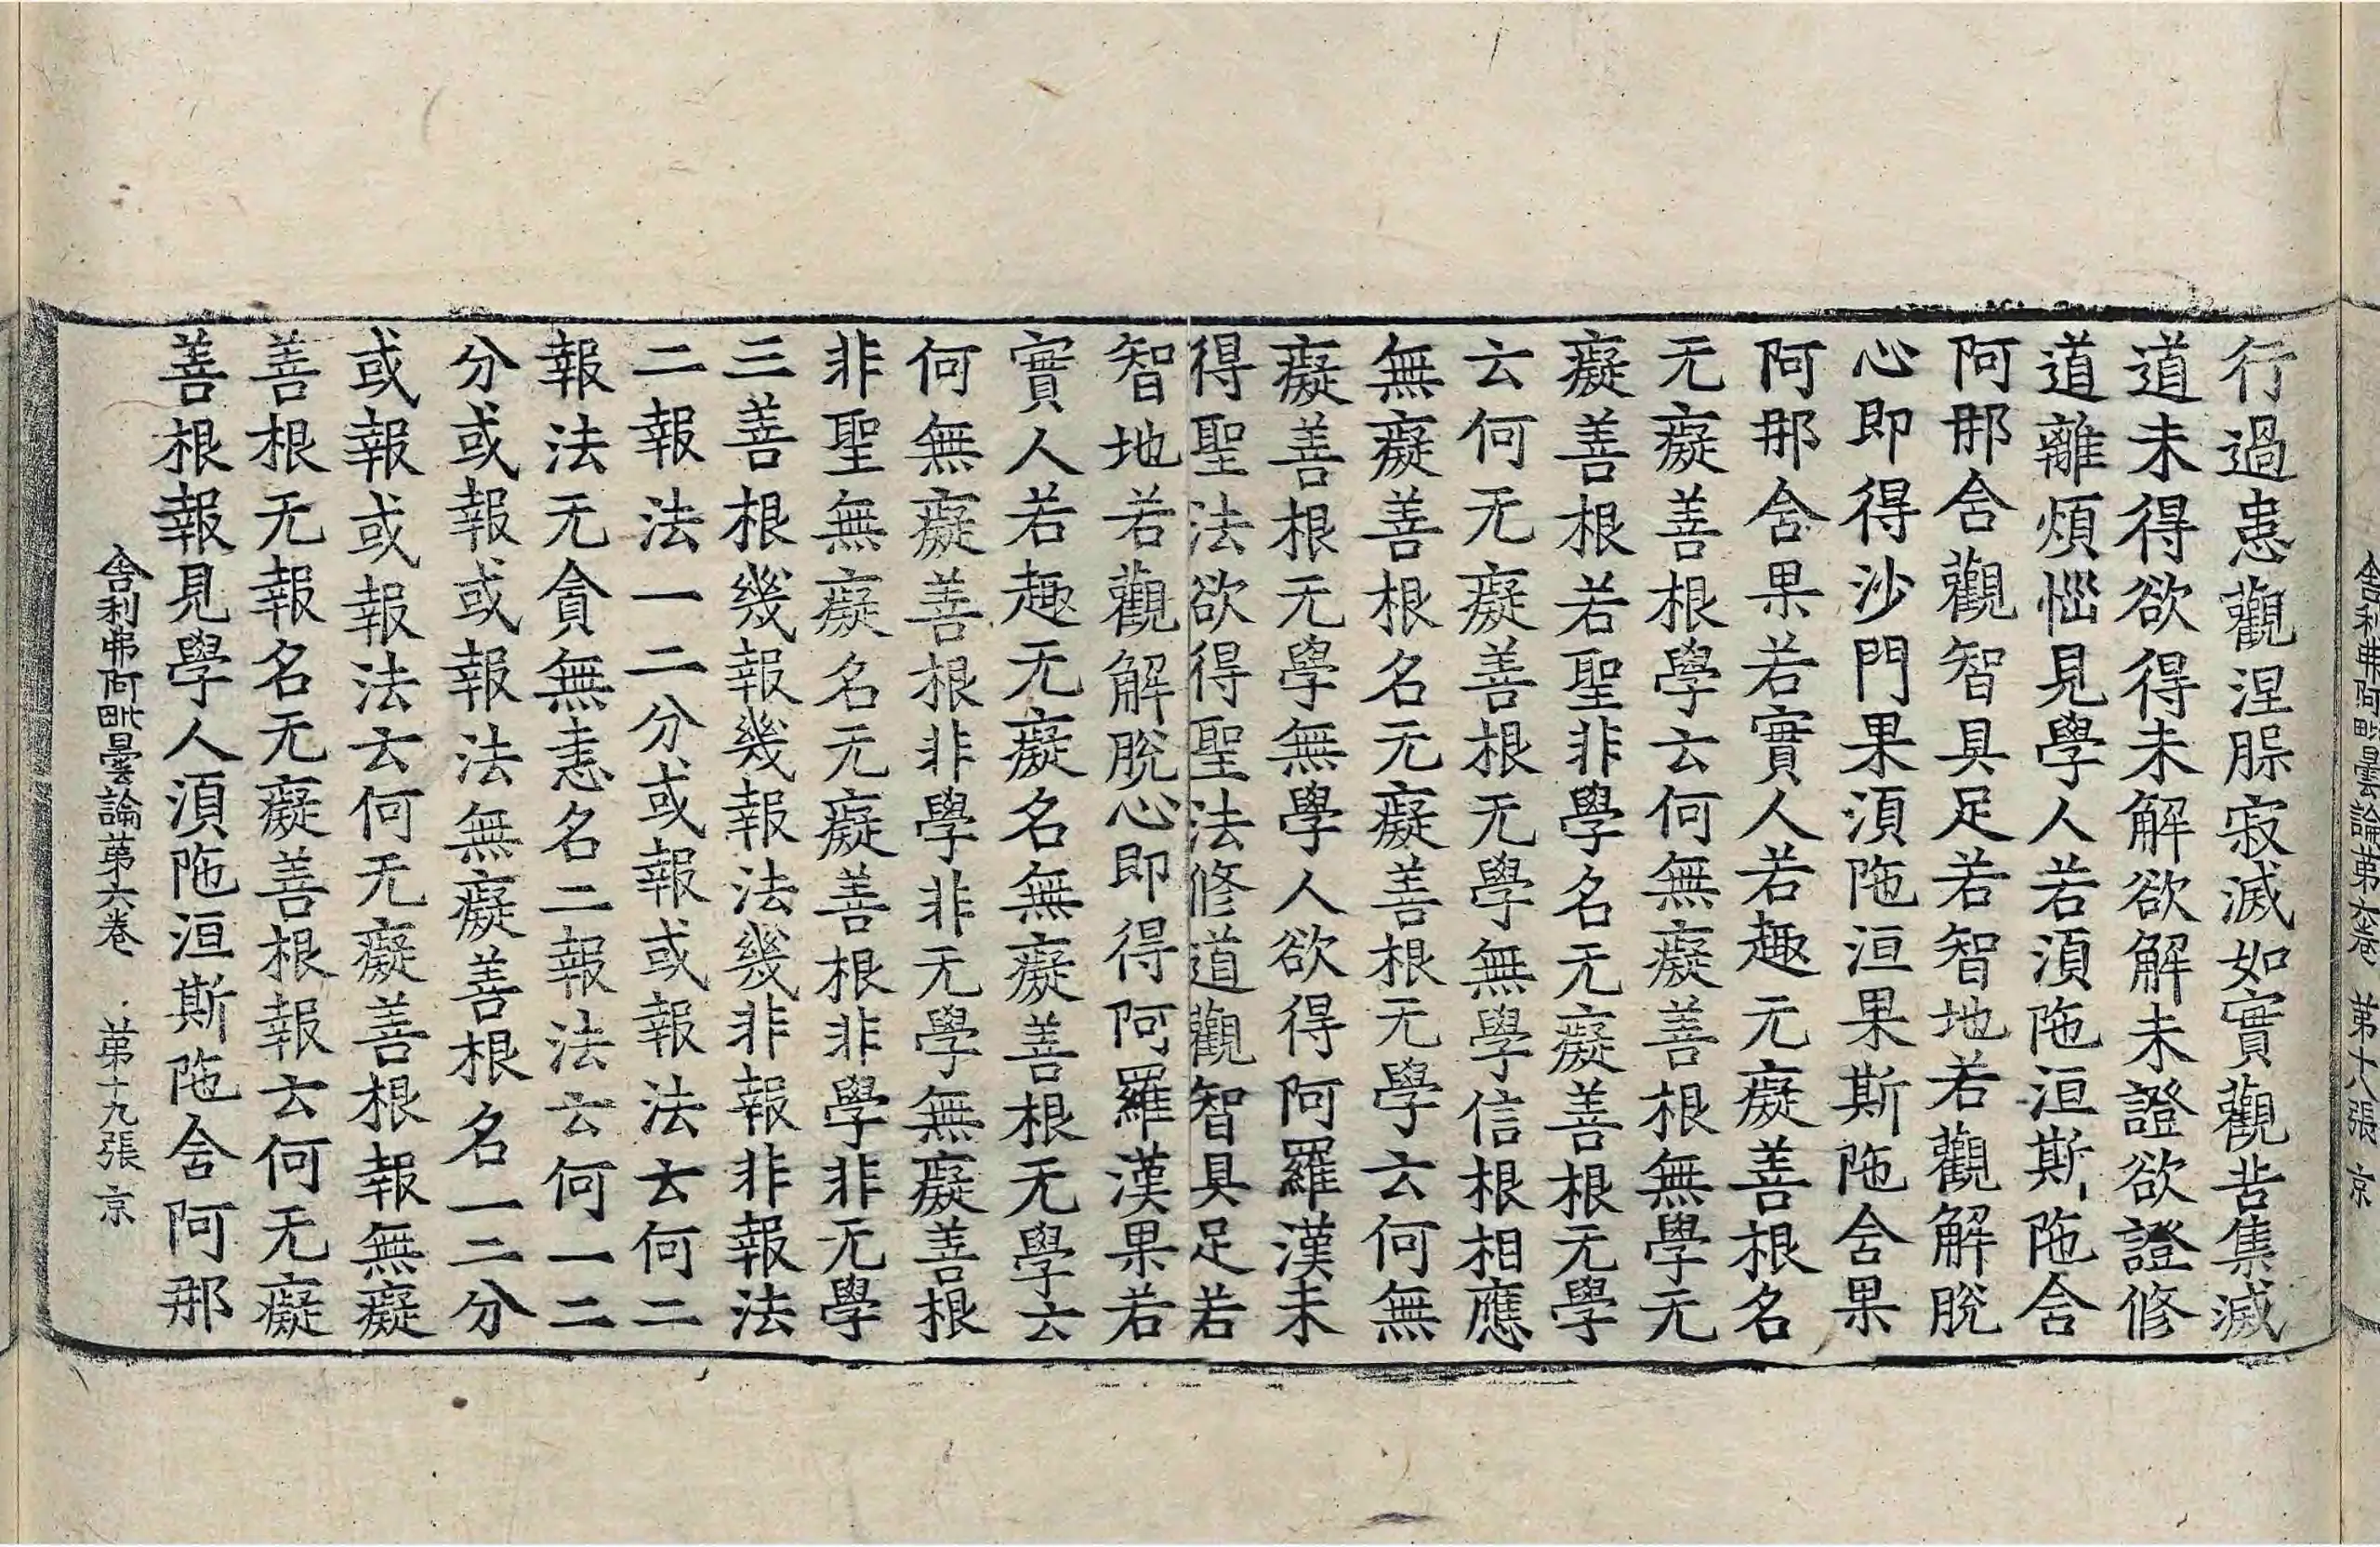 舎利弗阿毗曇論第六卷 第十八張 京
行過患觀涅脲寂滅如實觀苦集滅
道未得欲得未解欲解未證欲證修
道離煩惱見學人若湏陁洹斯陁舍
阿那舍觀智具足若智地若觀解脫
心即得沙門果湏陁洹果斯陁舍果
阿那舍果若實人若趣无癡善根名
无癡善根學云何無癡善根無學无
癡善根若聖非學名无癡善根无學
云何无癡善根无學無學信根相應
無癡善根名无癡善根无學云何無
癡善根无學無學人欲得阿羅漢未
得聖法欲得聖法修道觀智具足若
智地若觀解脫心即得阿羅漢果若
實人若趣无癡名無癡善根无學云
何無癡善根非學非无學無癡善根
非聖無癡名无癡善根非學非无學
三善根幾報幾報法幾非報非報法
二報法一二分或報或報法云何二
報法无貪無恚名二報法云何一二
分或報或報法無癡善根名一二分
或報或報法云何无癡善根報無癡
善根无報名无癡善根報云何无癡
善根報見學人湏陁洹斯陁舍阿那
舎利弗阿毗曇論第六卷 第十九張 京